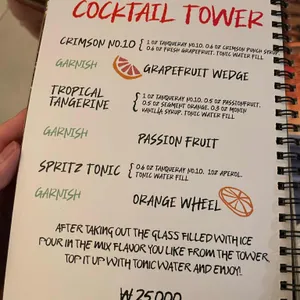 COCKTAIL TOWER
CRIMSON NO.10 { 1 OZ TANQUERAY NO.10. 0.6 OZ CRIMSON PUNCH SYRUP
0.6 OZ FRESH GRAPEFRUIT. TONIC WATER FILL
GARNISH GRAPEFRUIT WEDGE
TROPICAL
TANGERINE { 1 OZ TANQUERAY NO.10. 0.5 OZ PASSIONFRUIT.
0.5 OZ SEGMENT ORANGE. 0.3 OZ MONIN
VANILLA SYRUP. TONIC WATER FILL
GARNISH PASSION FRUIT
SPRITZ TONIC { 0.6 OZ TANQUERAY NO.10. 1OZ APEROL.
TONIC WATER FILL
GARNISH ORANGE WHEEL
AFTER TAKING OUT THE GLASS FILLED WITH ICE
POUR IN THE MIX FLAVOR YOU LIKE FROM THE TOWER
TOP IT UP WITH TONIC WATER AND ENJOY!
₩ 25,000